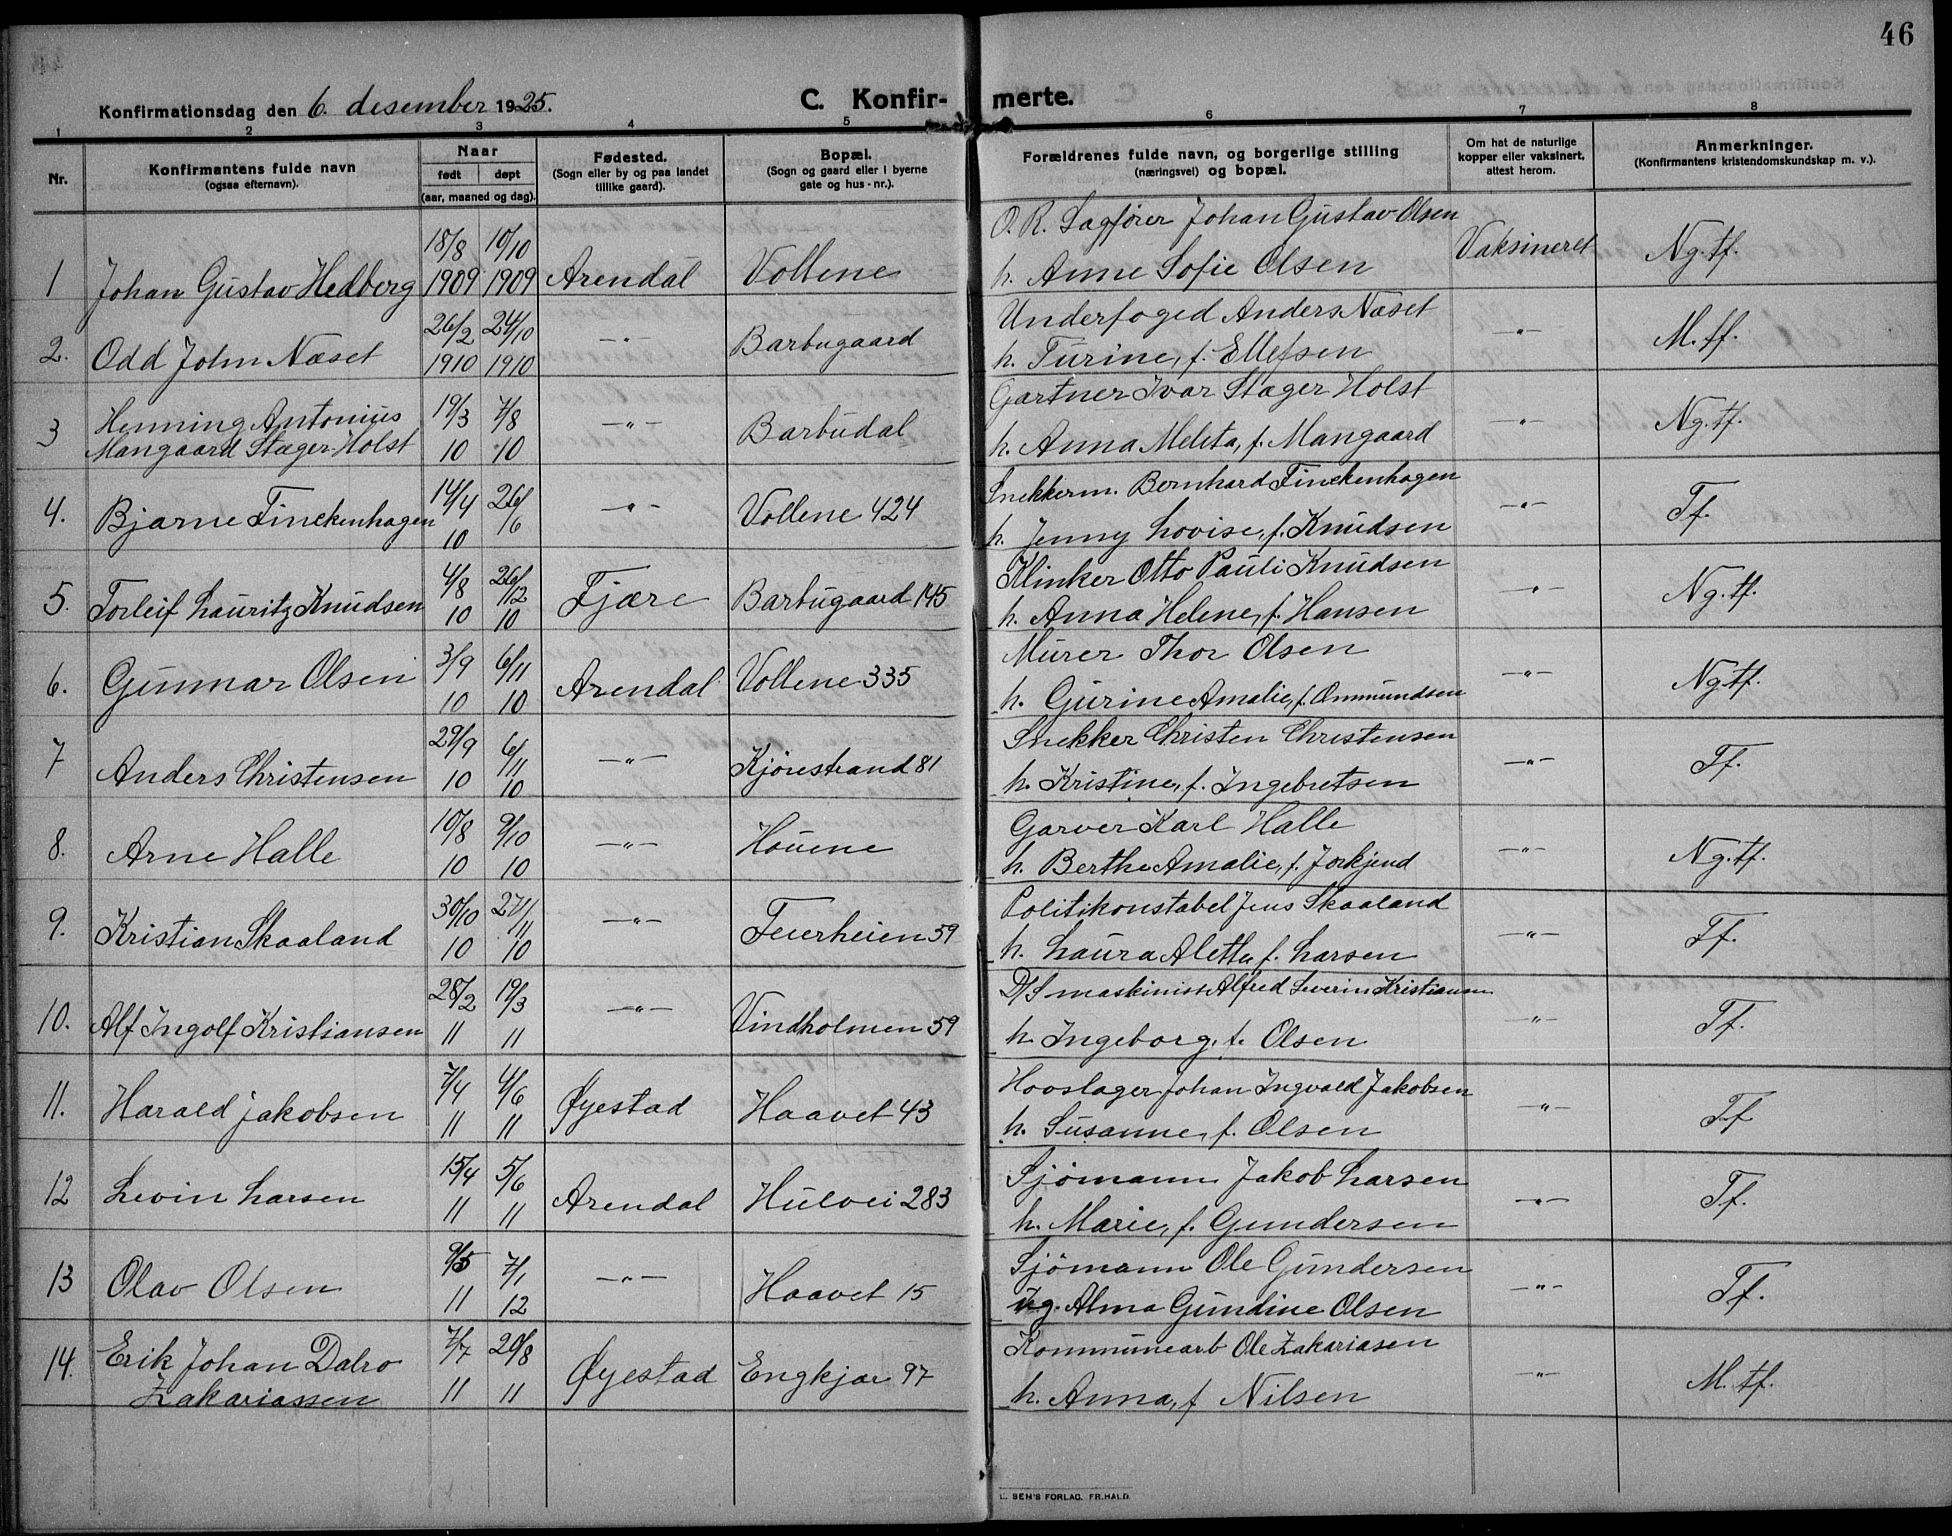 46
Konfirmationsdag den 6. desember 1925.
C. Konfir- merte.
1 2 3 4 5 6 7 8
Nr.
Konfirmantens fulde navn
(ogsaa efternavn).
Naar
født døpt
(aar, maaned og dag).
Fødested.
(Sogn eller by og paa landet
tillike gaard).
Bopæl.
(Sogn og gaard eller i byerne
gate og hus-nr.).
Forældrenes fulde navn, og borgerlige stilling
(næringsvei) og bopæl.
Om hat de naturlige
kopper eller vaksinert,
attest herom.
Anmerkninger.
(Konfirmantens kristendomskundskap m. v.).
18/8 10/10 O. R. Sagfører Johan Gustav Olsen
1 Johan Gustav Hedberg 1909 1909 Arendal Vollene h. Anne Sofie Olsen Vaksineret Ng. tf.
26/2 24/10 Underfoged Anders Næset
2. Odd John Næset 1910 1910 —„— Barbugaard h. Turine, f. Ellefsen —„— M. tf.
Henning Antonius 19/3 7/8 Gartner Ivar Stæger Holst
3 Mangaard Stæger-Holst 10 10 —„— Barbudal h. Anna Meleta, f. Mangaard —„— Ng. tf.
14/4 26/6 Snekkerm. Bernhard Finckenhagen
4. Bjarne Finckenhagen 10 —„— Vollene 424 h. Jenny Lovise, f. Knudsen —„— Tf.
4/8 26/12 Klinker Otto Pauli Knudsen
5. Torleif Lauritz Knudsen 10 10 Fjære Barbugaard 145 h. Anna Helene, f. Hansen —„— Ng. tf.
3/9 6/11 Murer Thor Olsen
6. Gunnar Olsen 10 10 Arendal Vollene 335 h. Gurine Amalie, f. Ommundsen —„— Ng. tf.
29/9 6/11 Snekker Christen Christensen
7 Anders Christensen 10 10 —„— Kjørestrand 81 h. Kristine, f. Ingebretsen —„— Tf.
10/8 9/10 Garver Karl Halle
8. Arne Halle 10 10 —„— Houene h. Berthe Amalie, f. Jorkjend —„— Ng. tf.
30/10 27/11 Politikonstabel Jens Skaaland
9. Kristian Skaaland 10 10 —„— Feierheien 59 h. Laura Aletta, f. Larsen —„— Tf.
28/2 19/3 D/S maskinist Alfred Severin Kristiansen
10. Alf Ingolf Kristiansen 11 11 —„— Vindholmen 59 h. Ingeborg, f. Olsen —„— Tf.
7/4 4/6 Hovslager Johan Ingvald Jakobsen
11. Harald Jakobsen 11 11 Øyestad Haavet 43 h. Susanne, f. Olsen —„— Tf
15/4 5/6 Sjømann Jakob Larsen
12 Levin Larsen 11 11 Arendal Hulvei 283 h. Marie, f. Gundersen —„— Tf.
9/5 7/1 Sjømann Ole Gundersen
13 Olav Olsen 11 12 —„— Haavet 15 ug. Alma Gundine Olsen —„— Tf.
Erik Johan Dalro 7/7 20/8 Kommunearb Ole Zakariasen
14. Zakariassen 11 11 Øyestad Engkjær 97 h. Anna, f Nilsen —„— M. tf.
SEN'S FORLAG. FR.HALD.